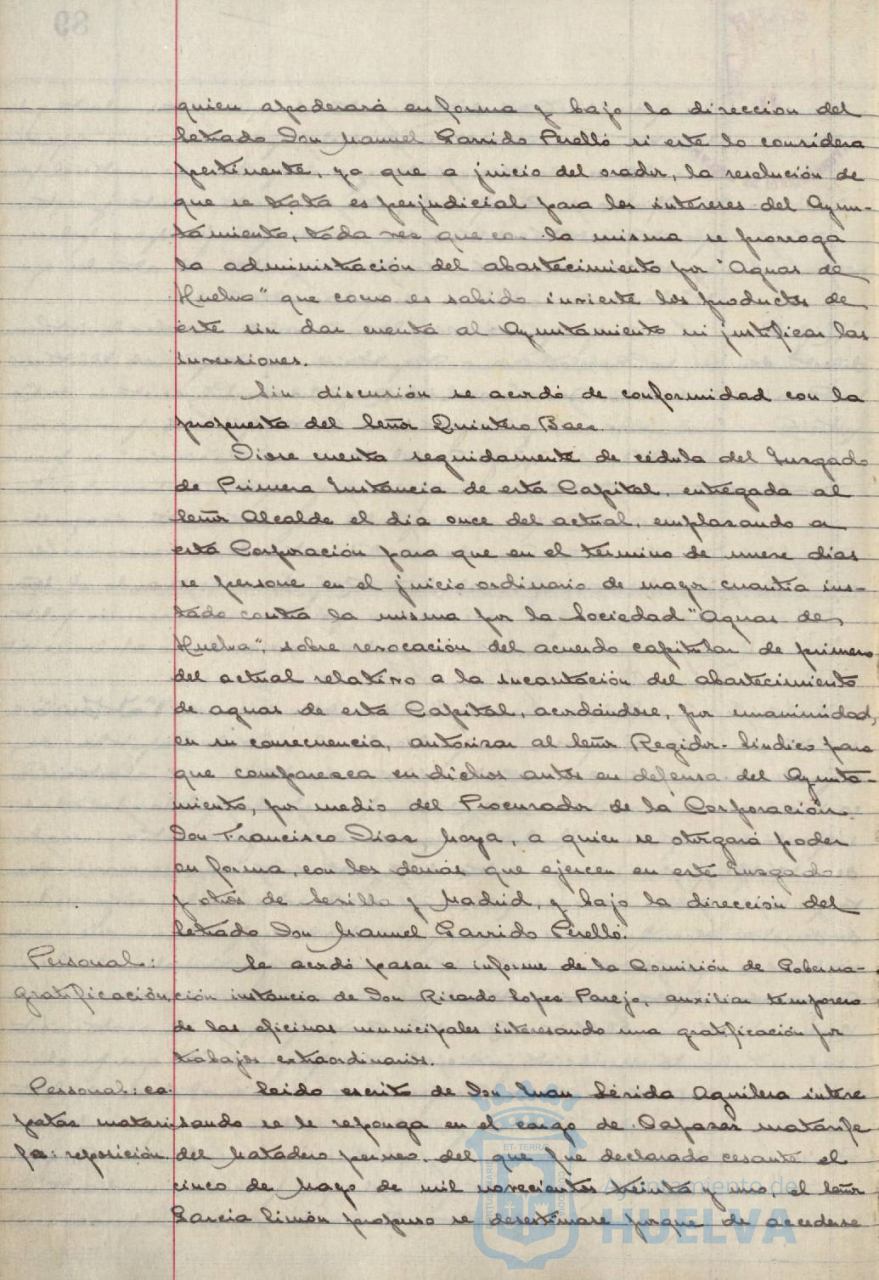 quien apoderará en forma y bajo la direccion del
letrado Don Manuel Garrido Perelló si este lo considera
pertinente, ya que a juicio del orador, la resolución de
que se trata es perjudicial para los intereses del Ayun-
tamiento, toda vez que con la misma se prorroga
la administración del abastecimiento por "Aguas de
Huelva" que como es sabido invierte los productos de
este sin dar cuenta al Ayuntamiento ni justificar las
inversiones.
Sin discusión se acordó de conformidad con la
propuesta del Señor Quintero Baez.
Diose cuenta seguidamente de cédula del Juzgado
de Primera Instancia de esta Capital, entregada al
Señor Alcalde el dia once del actual, emplazando a
esta Corporación para que en el término de nueve dias
se persone en el juicio ordinario de mayor cuantia ins-
tado contra la misma por la Sociedad "Aguas de
Huelva", sobre revocación del acuerdo capitular de primero
del actual relativo a la incautación del abastecimiento
de aguas de esta Capital, acordándose, por unanimidad,
en su consecuencia, autorizar al Señor Regidor-Sindico para
que comparezca en dichos autos en defensa del Ayunta-
miento, por medio del Procurador de la Corporación
Don Francisco Dias Moya, a quien se otorgará poder
en forma, con los demás que ejercen en este Juzgado
y otros de Sevilla y Madrid, y bajo la dirección del
letrado Don Manuel Garrido Perelló.
Personal: Se acordó pasar a informe de la Comisión de Goberna-
gratificación ción instancia de Don Ricardo Lopez Parejo, auxiliar temporero
de las oficinas municipales interesando una gratificación por
trabajos extraordinarios.
Personal: ca- Leido escrito de Don Juan Lérida Aguilera intere
pataz matari- sando se le reponga en el cargo de Capazar matarife
fe: reposición del Matadero porvno, del que fue declarado cesante el
cinco de Mayo de mil novecientos treinta y uno, el Señor
Garcia Limón propuso se desestimase porque de accederse
ET-TERRA
Ayuntamiento de
HUELVA
89